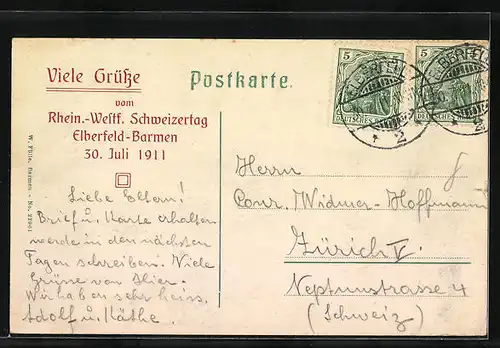 Viele Grüße
vom
Rhein.-Westf. Schweizertag
Elberfeld-Barmen
30. Juli 1911
Postkarte.
5
5
DEUTSCHES
DEUTSCHES
ELBERFELD
ELBERFELD
2
2
Liebe Eltern!
Brief u. Karte erhalten
werde in den nächsten
Tagen schreiben. Viele
Grüsse von Hier.
Wir haben sehr heiss.
Adolf u. Käthe.
Herrn
Conr. Widmer-Hoffmann
Zürich V.
Neptunstrasse 4
(Schweiz)
W. Fülle, Barmen - No.